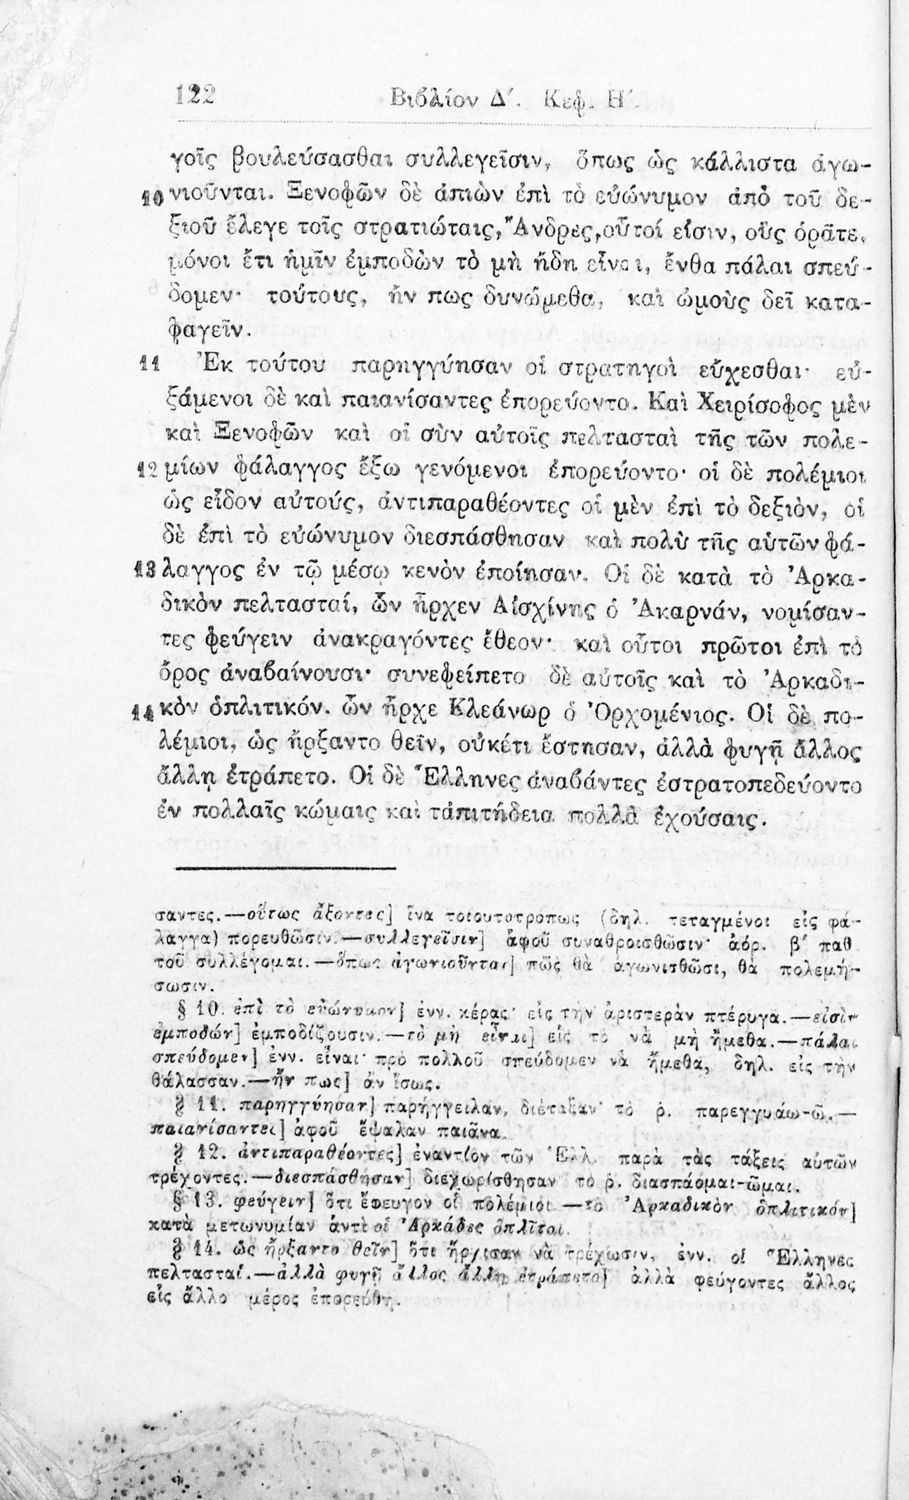 122 Βιβλίον Δ΄. Κεφ. Η΄.
γοῖς βουλεύσασθαι συλλεγεῖσιν, ὅπως ὡς κάλλιστα ἀγω-
10 νιοῦνται. Ξενοφῶν δὲ ἀπιὼν ἐπὶ τὸ εὐώνυμον ἀπὸ τοῦ δε-
ξιοῦ ἔλεγε τοῖς στρατιώταις, Ἄνδρες, οὗτοί εἰσιν, οὓς ὁρᾶτε,
μόνοι ἔτι ἡμῖν ἐμποδὼν τὸ μὴ ἤδη εἶναι, ἔνθα πάλαι σπεύ-
δομεν· τούτους, ἤν πως δυνώμεθα, καὶ ὠμοὺς δεῖ κατα-
φαγεῖν.
11 Ἐκ τούτου παρηγγύησαν οἱ στρατηγοὶ εὔχεσθαι· εὐ-
ξάμενοι δὲ καὶ παιανίσαντες ἐπορεύοντο. Καὶ Χειρίσοφος μὲν
καὶ Ξενοφῶν καὶ οἱ σὺν αὐτοῖς πελτασταὶ τῆς τῶν πολε-
12 μίων φάλαγγος ἔξω γενόμενοι ἐπορεύοντο· οἱ δὲ πολέμιοι
ὡς εἶδον αὐτούς, ἀντιπαραθέοντες οἱ μὲν ἐπὶ τὸ δεξιὸν, οἱ
δὲ ἐπὶ τὸ εὐώνυμον διεσπάσθησαν καὶ πολὺ τῆς αὑτῶν φά-
13 λαγγος ἐν τῷ μέσῳ κενὸν ἐποίησαν. Οἱ δὲ κατὰ τὸ Ἀρκα-
δικὸν πελτασταί, ὧν ἦρχεν Αἰσχίνης ὁ Ἀκαρνάν, νομίσαν-
τες φεύγειν ἀνακραγόντες ἔθεον· καὶ οὗτοι πρῶτοι ἐπὶ τὸ
ὄρος ἀναβαίνουσι· συνεφείπετο δὲ αὐτοῖς καὶ τὸ Ἀρκαδι-
14 κὸν ὁπλιτικόν. ὧν ἦρχε Κλεάνωρ ὁ Ὀρχομένιος. Οἱ δὲ πο-
λέμιοι, ὡς ἤρξαντο θεῖν, οὐκέτι ἔστησαν, ἀλλὰ φυγῇ ἄλλος
ἄλλῃ ἐτράπετο. Οἱ δὲ Ἕλληνες ἀναβάντες ἐστρατοπεδεύοντο
ἐν πολλαῖς κώμαις καὶ τἀπιτήδεια πολλὰ ἐχούσαις.
σαντες.—οὕτως ἄξοντες] ἵνα τοιουτοτρόπως (δηλ. τεταγμένοι εἰς φά-
λαγγα) πορευθῶσιν.—συλλεγεῖσιν] ἀφοῦ συναθροισθῶσιν· ἀόρ. β΄ παθ
τοῦ συλλέγομαι.—ὅπως ἀγωνιοῦνται] πῶς θὰ ἀγωνισθῶσι, θὰ πολεμή-
σωσιν.
§ 10. ἐπὶ τὸ εὐώνυμον] ἐνν. κέρας· εἰς τὴν ἀριστερὰν πτέρυγα.—εἰσὶν
ἐμποδών] ἐμποδίζουσιν.—τὸ μὴ εἶναι] εἰς τὸ νὰ μὴ ἤμεθα.—πάλαι
σπεύδομεν] ἐνν. εἶναι· πρὸ πολλοῦ σπεύδομεν νὰ ἤμεθα, δηλ. εἰς τὴν
θάλασσαν.—ἤν πως] ἂν ἴσως.
§ 11. παρηγγύησαν] παρήγγειλαν, διέταξαν· τὸ ῥ. παρεγγυάω-ῶ.—
παιανίσαντες] ἀφοῦ ἔψαλαν παιᾶνα.
§ 12. ἀντιπαραθέοντες] ἐναντίον τῶν Ἑλλ. παρὰ τὰς τάξεις αὐτῶν
τρέχοντες.—διεσπάσθησαν] διεχωρίσθησαν τὸ ῥ. διασπάομαι-ῶμαι.
§ 13. φεύγειν] ὅτι ἔφευγον οἱ πολέμιοι.—τὸ Ἀρκαδικὸν ὁπλιτικόν]
κατὰ μετωνυμίαν ἀντὶ οἱ Ἀρκάδες ὁπλῖται.
§ 14. ὡς ἤρξαντο θεῖν] ὅτι ἤρχισαν νὰ τρέχωσιν, ἐνν. οἱ Ἕλληνες
πελτασταί.—ἀλλὰ φυγῇ ἄλλος ἄλλῃ ἐτράπετο] ἀλλὰ φεύγοντες ἄλλος
εἰς ἄλλο μέρος ἐπορεύθη.